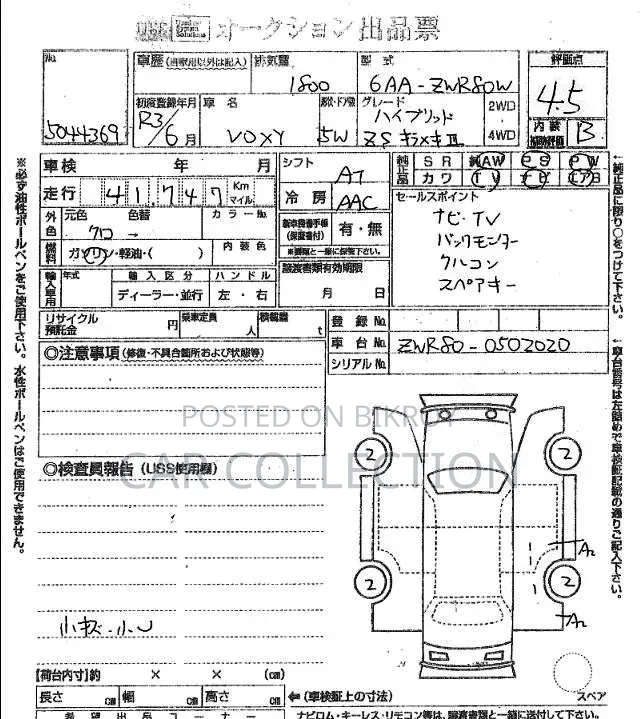 USS オークション 出品票
No.
5044369
車歴(自家用以外は記入)
排気量
1800
型式
6AA-ZWR80W
評価点
4.5
内装 B
初度登録年月
R3/6月
車名
VOXY
型状・ドア数
5W
グレード
ハイブリッド
ZS キラメキⅢ
2WD
4WD
車検 年 月
シフト
AT
純正品
SR 純AW PS PW
カワ TV ナビ エアB
走行 41,747 Km マイル
冷房
AAC
セールスポイント
ナビ・TV
バックモニター
クルコン
スペアキー
外色
元色 色替 カラーNo.
クロ →
新車時備手帳
(保証書付)
有・無
燃料
ガソリン・軽油・( )
内装色
※書類と一緒に保管下さい。
輸入車用
年式
輸入区分
ハンドル
ディーラー・並行
左・右
譲渡書類有効期限
月 日
リサイクル預託金 円
乗車定員 人
積載量 t
登録No.
車台No. ZWR80-0502020
シリアルNo.
◎注意事項(修復・不具合箇所および状態等)
◎検査員報告(USS使用欄)
小キズ・小U
2
2
2
2
A2
A2
スペア
【荷台内寸】約 × × (cm)
長さ cm 幅 cm 高さ cm
←(車検証上の寸法)
希望出品コーナー
ナビロム・キーレス・リモコン等は、譲渡書類と一緒に送付して下さい。
※必ず油性ボールペンをご使用下さい。水性ボールペンはご使用できません。
←純正品に限り○をつけて下さい。
←車台番号は左詰めで車検証記載の通りご記入下さい。
POSTED ON BIKROY
CAR COLLECTION